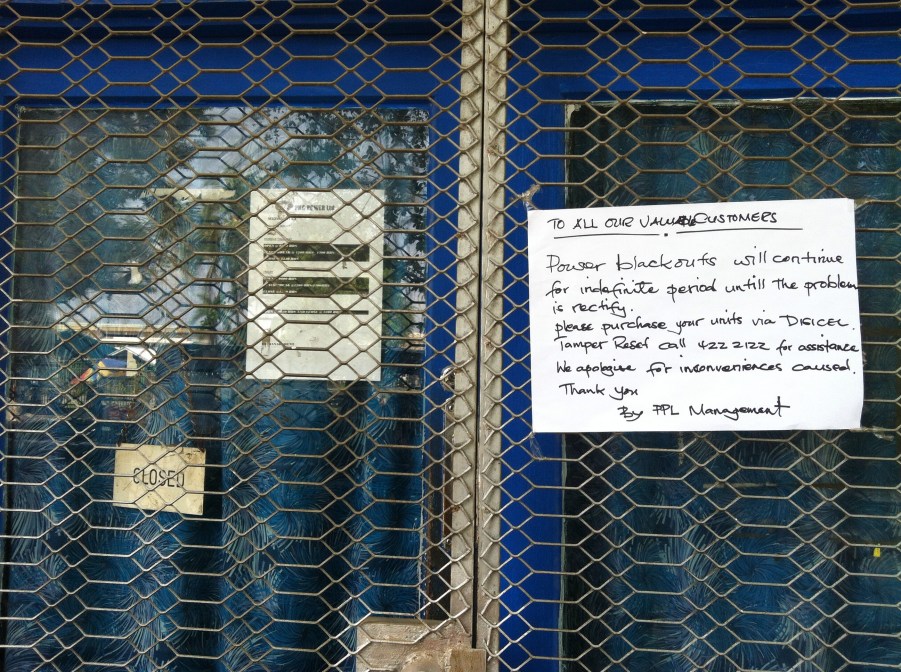 PNG POWER LTD
CLOSED
TO ALL OUR VALUABLE CUSTOMERS
Power blackouts will continue
for indefinite period untill the problem
is rectify.
please purchase your units via DIGICEL.
Tamper Reset call 422 2122 for assistance
We apologise for insonveniences caused.
Thank you
By PPL Management